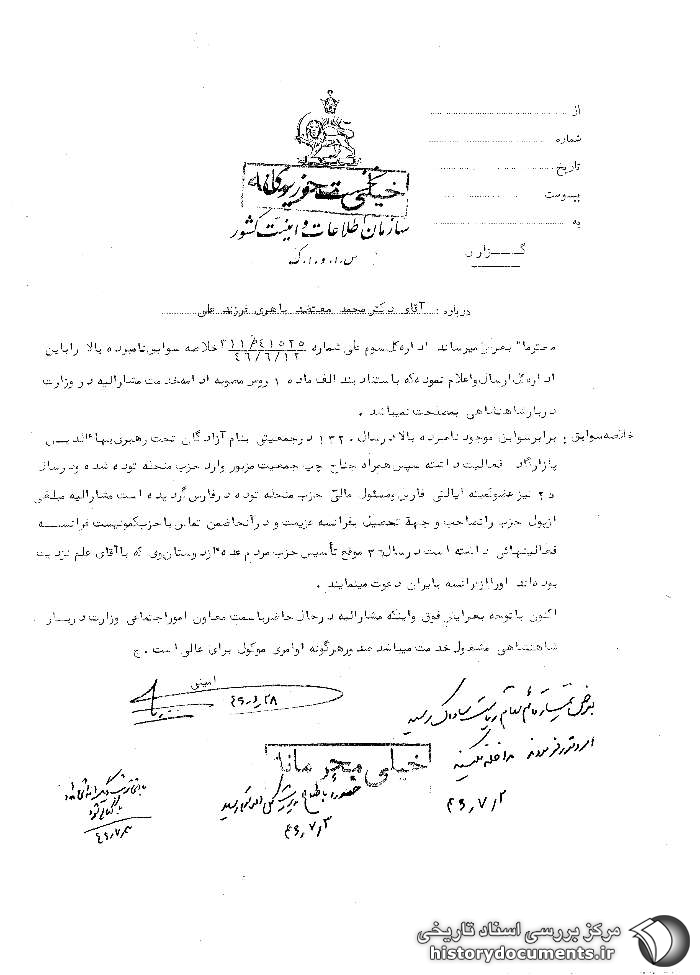 از
شماره
تاریخ
پیوست
به
گزارش
سازمان اطلاعات و امنیت کشور
س.ا.و.ا.ک
درباره : آقای دکتر محمد معتضد باهری فرزند علی
محترما" بعرض میرساند اداره کل سوم طی شماره ۳۱۱/۴۱۵۲۵ ۴۶/۶/۱۲ خلاصه سوابق نامبرده بالا را باین
اداره کل ارسال و اعلام نموده که باستناد بند الف ماده ۱ روش مصوبه ادامه خدمت مشارالیه در وزارت
دربار شاهنشاهی بمصلحت نمیباشد .
خلاصه سوابق : برابر سوابق موجود نامبرده بالا در سال ۱۳۲۰ در جمعیتی بنام آزادگان تحت رهبری بهاءالدین
پازارگاد فعالیت داشته سپس همراه جناح چپ جمعیت مزبور وارد حزب منحله توده شده و در سال
۲۵ نیز عضو کمیته ایالتی فارس و مسئول مالی حزب منحله توده در فارس گردیده است مشارالیه مبلغی
از پول حزب را تصاحب و جهة تحصیل بفرانسه عزیمت و در آنجا ضمن تماس با حزب کمونیست فرانسه
فعالیتهائی داشته است در سال ۳۶ موقع تأسیس حزب مردم عده ای از دوستان وی که با آقای علم نزدیک
بوده اند او را از فرانسه بایران دعوت مینمایند .
اکنون با توجه بمراتب فوق و اینکه مشارالیه در حال حاضر با سمت معاون امور اجتماعی وزارت دربار
شاهنشاهی مشغول خدمت میباشد صدور هرگونه اوامری موکول برای عالی است . ج
امینی
بعرض تیمسار قائم مقام ریاست ساواک رسید
خیلی محرمانه
۴۶/۷/۲
۴۶/۷/۳
مرکز بررسی اسناد تاریخی
historydocuments.ir